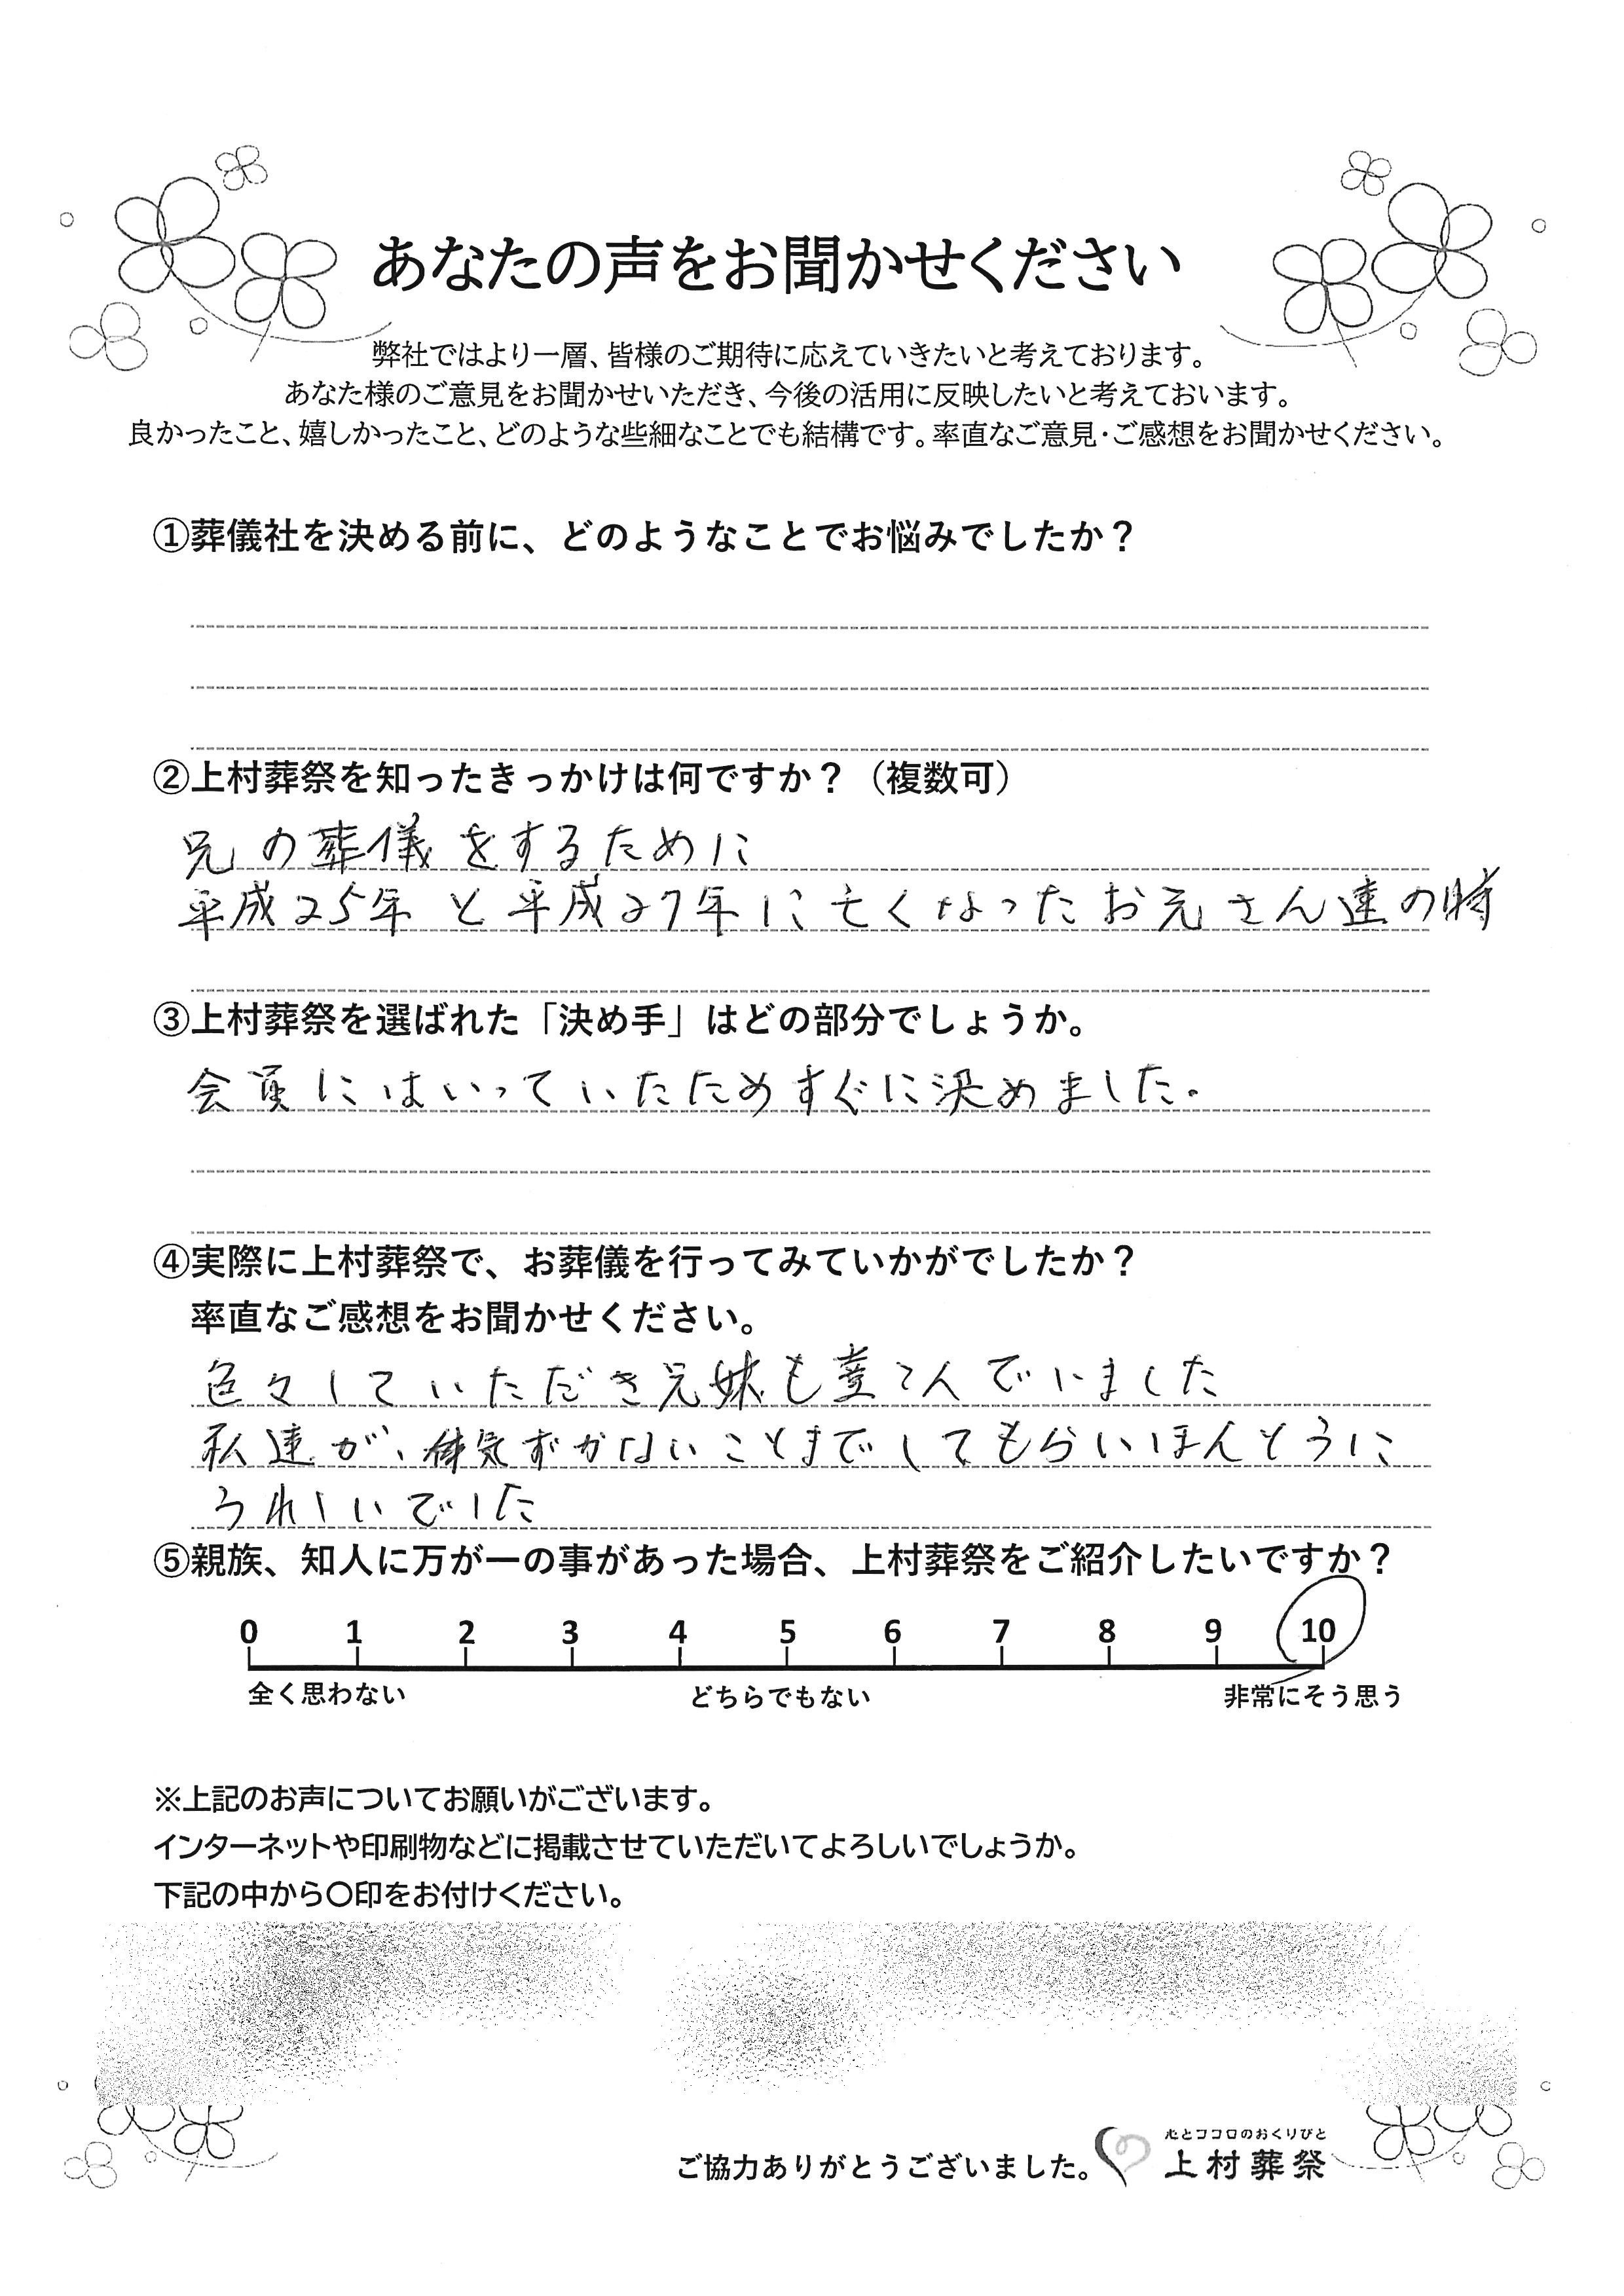 あなたの声をお聞かせください
弊社ではより一層、皆様のご期待に応えていきたいと考えております。
あなた様のご意見をお聞かせいただき、今後の活用に反映したいと考えておいます。
良かったこと、嬉しかったこと、どのような些細なことでも結構です。率直なご意見・ご感想をお聞かせください。
①葬儀社を決める前に、どのようなことでお悩みでしたか？
②上村葬祭を知ったきっかけは何ですか？（複数可）
兄の葬儀をするために
平成25年と平成27年に亡くなったお兄さん達の時
③上村葬祭を選ばれた「決め手」はどの部分でしょうか。
会員にはいっていたためすぐに決めました。
④実際に上村葬祭で、お葬儀を行ってみていかがでしたか？
率直なご感想をお聞かせください。
色々していただき兄妹も喜こんでいました
私達が、気ずかないことまでしてもらいほんとうに
うれしいでした
⑤親族、知人に万が一の事があった場合、上村葬祭をご紹介したいですか？
0 1 2 3 4 5 6 7 8 9 10
全く思わない どちらでもない 非常にそう思う
※上記のお声についてお願いがございます。
インターネットや印刷物などに掲載させていただいてよろしいでしょうか。
下記の中から〇印をお付けください。
心とココロのおくりびと
ご協力ありがとうございました。 上村葬祭